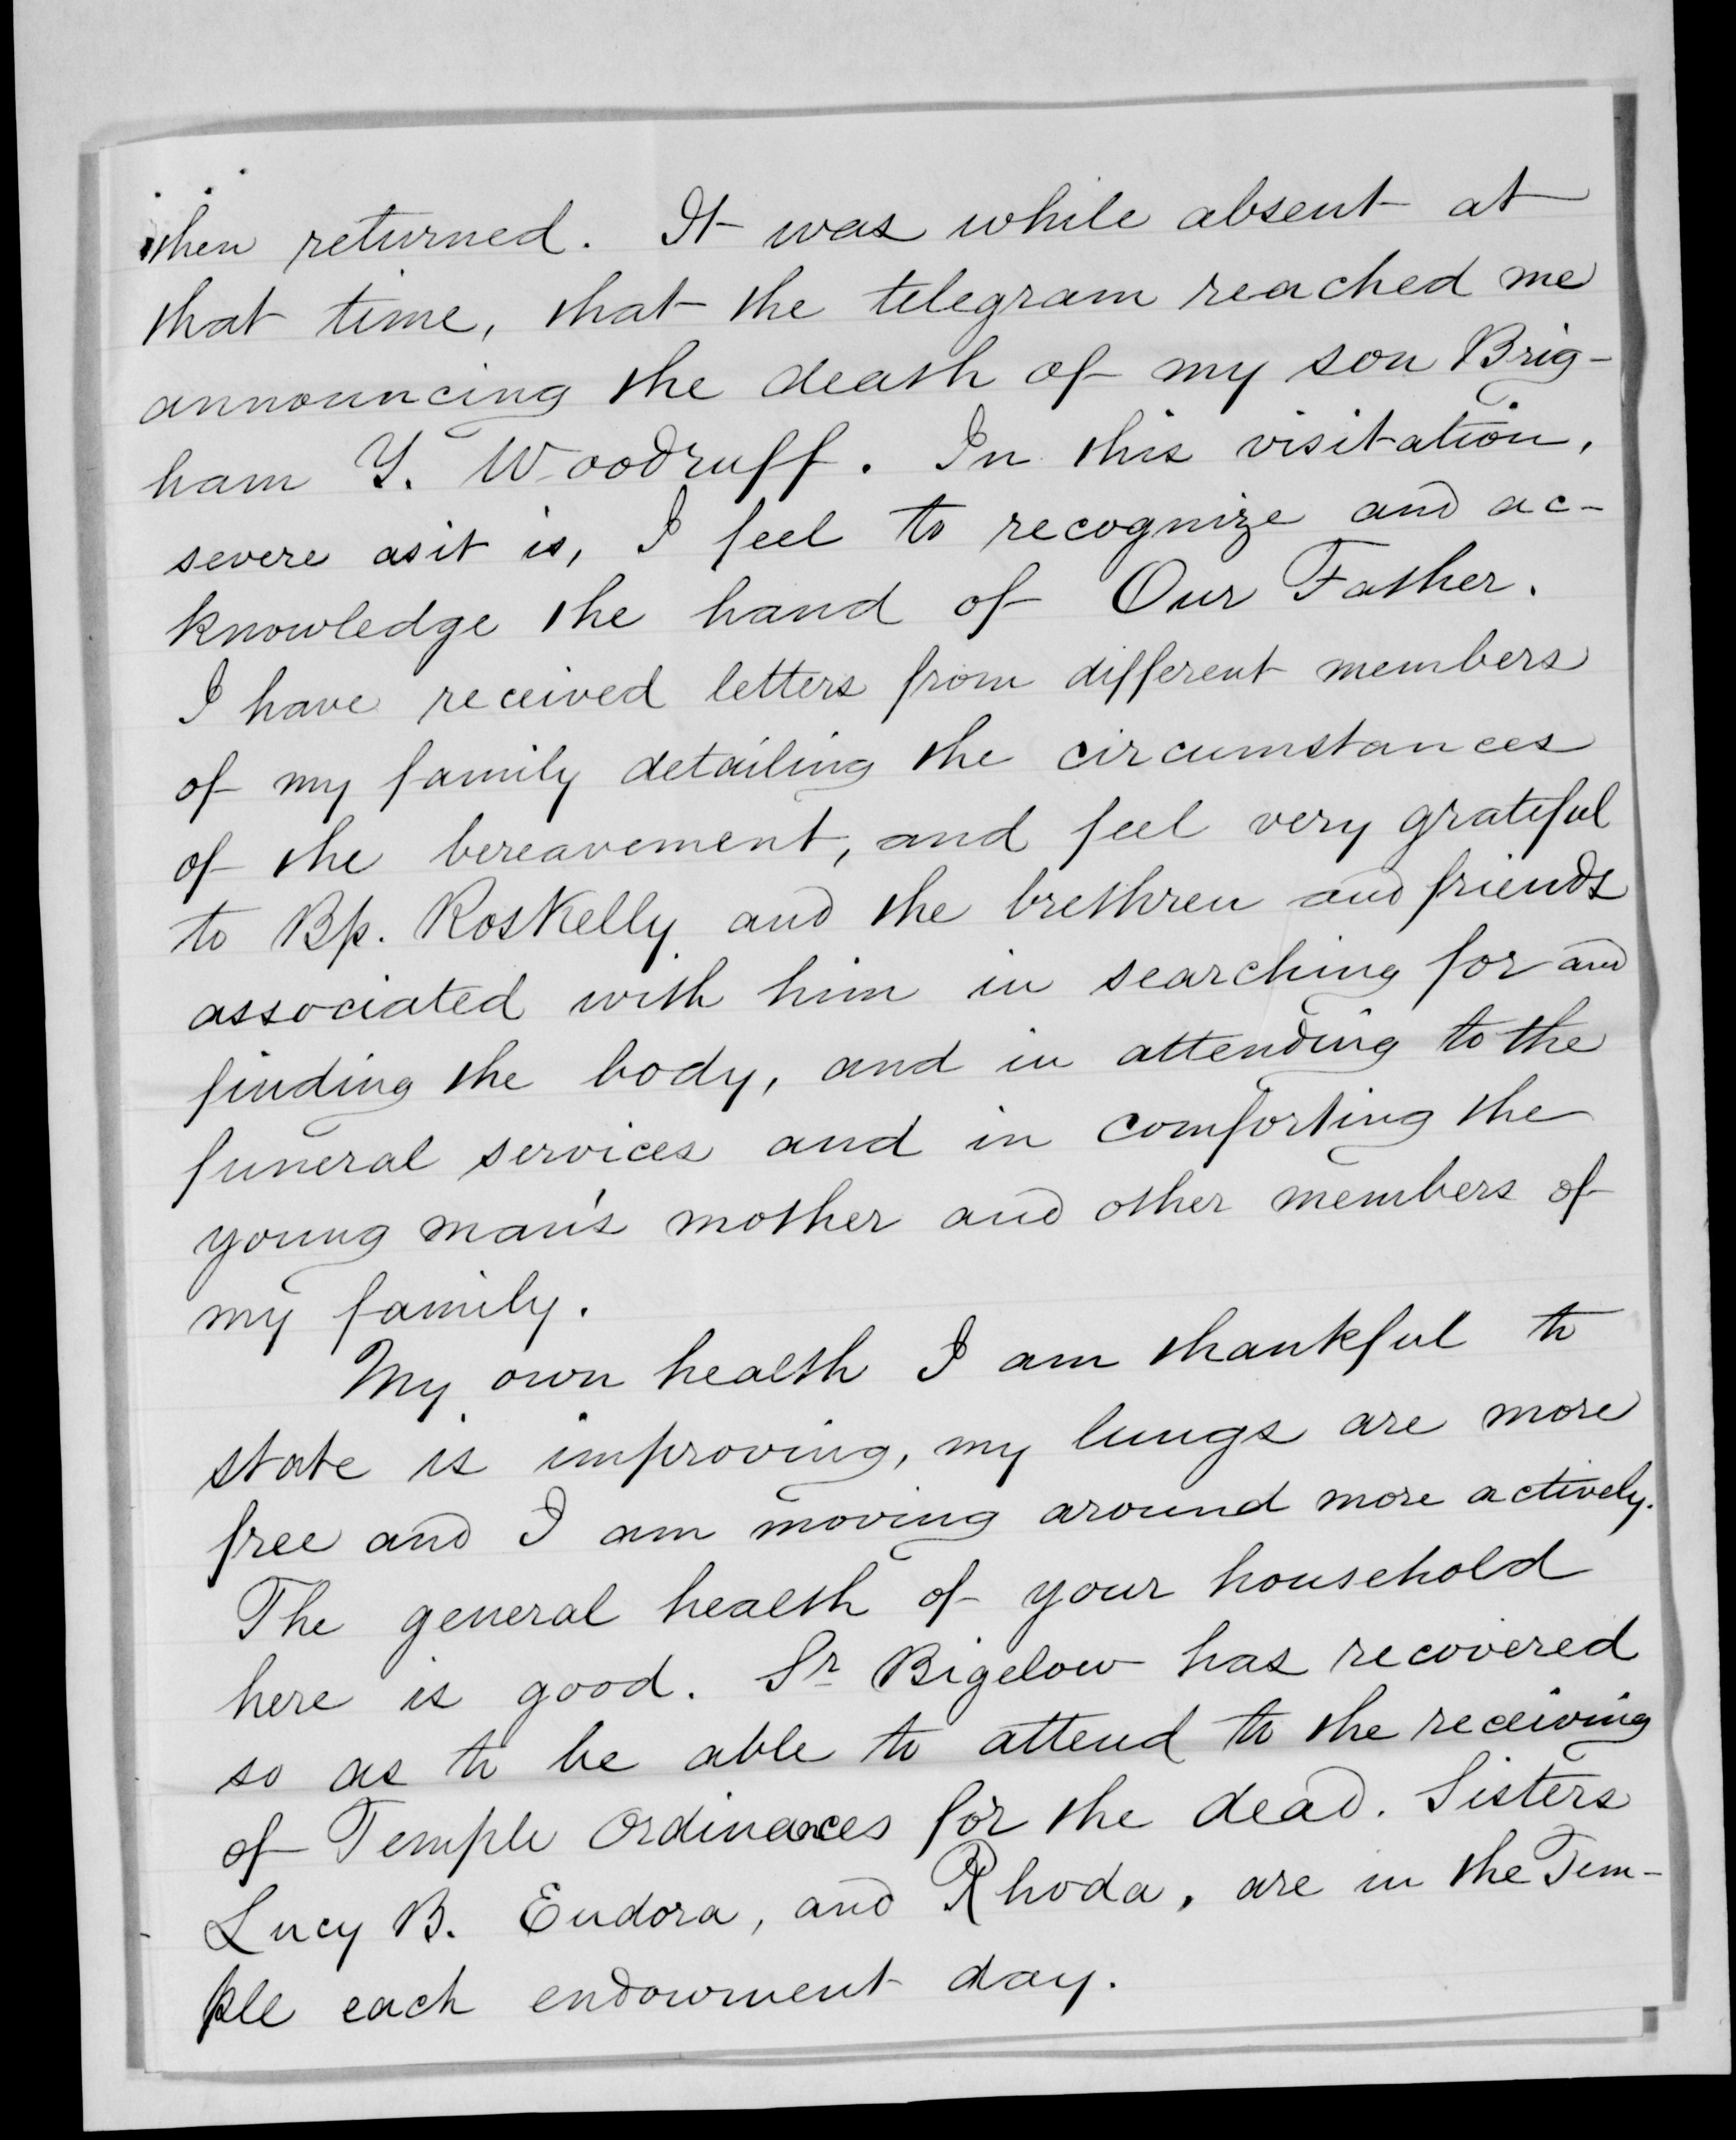 then returned. It was while absent at
that time, that the telegram reached me
announcing the death of my son Brig-
ham Y. Woodruff. In this visitation,
severe as it is, I feel to recognize and ac-
knowledge the hand of Our Father.
I have received letters from different members
of my family detailing the circumstances
of the bereavement, and feel very grateful
to Bp. Roskelly and the brethren and friends
associated with him in searching for and
finding the body, and in attending to the
funeral services and in comforting the
young man's mother and other members of
my family.
My own health I am thankful to
state is improving, my lungs are more
free and I am moving around more actively.
The general health of your household
here is good. Sr Bigelow has recovered
so as to be able to attend to the receiving
of Temple ordinances for the dead. Sisters
Lucy B. Eudora, and Rhoda, are in the Tem-
ple each endowment day.